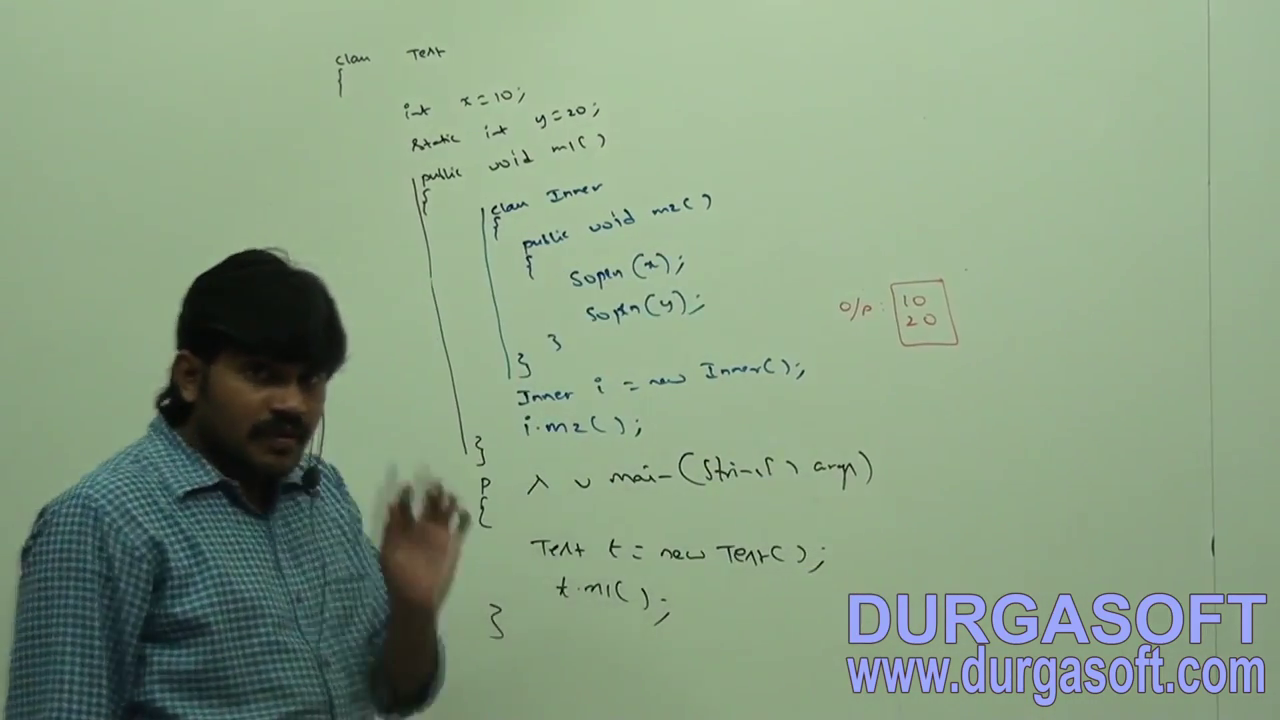 class Test
{
int x=10;
static int y=20;
public void m1()
{
class Inner
{
public void m2()
{
Sopln(x);
Sopln(y);
}
}
Inner i = new Inner();
i.m2();
}
P s v main(String[] args)
{
Test t = new Test();
t.m1();
}
O/P: 10
20
DURGASOFT
www.durgasoft.com